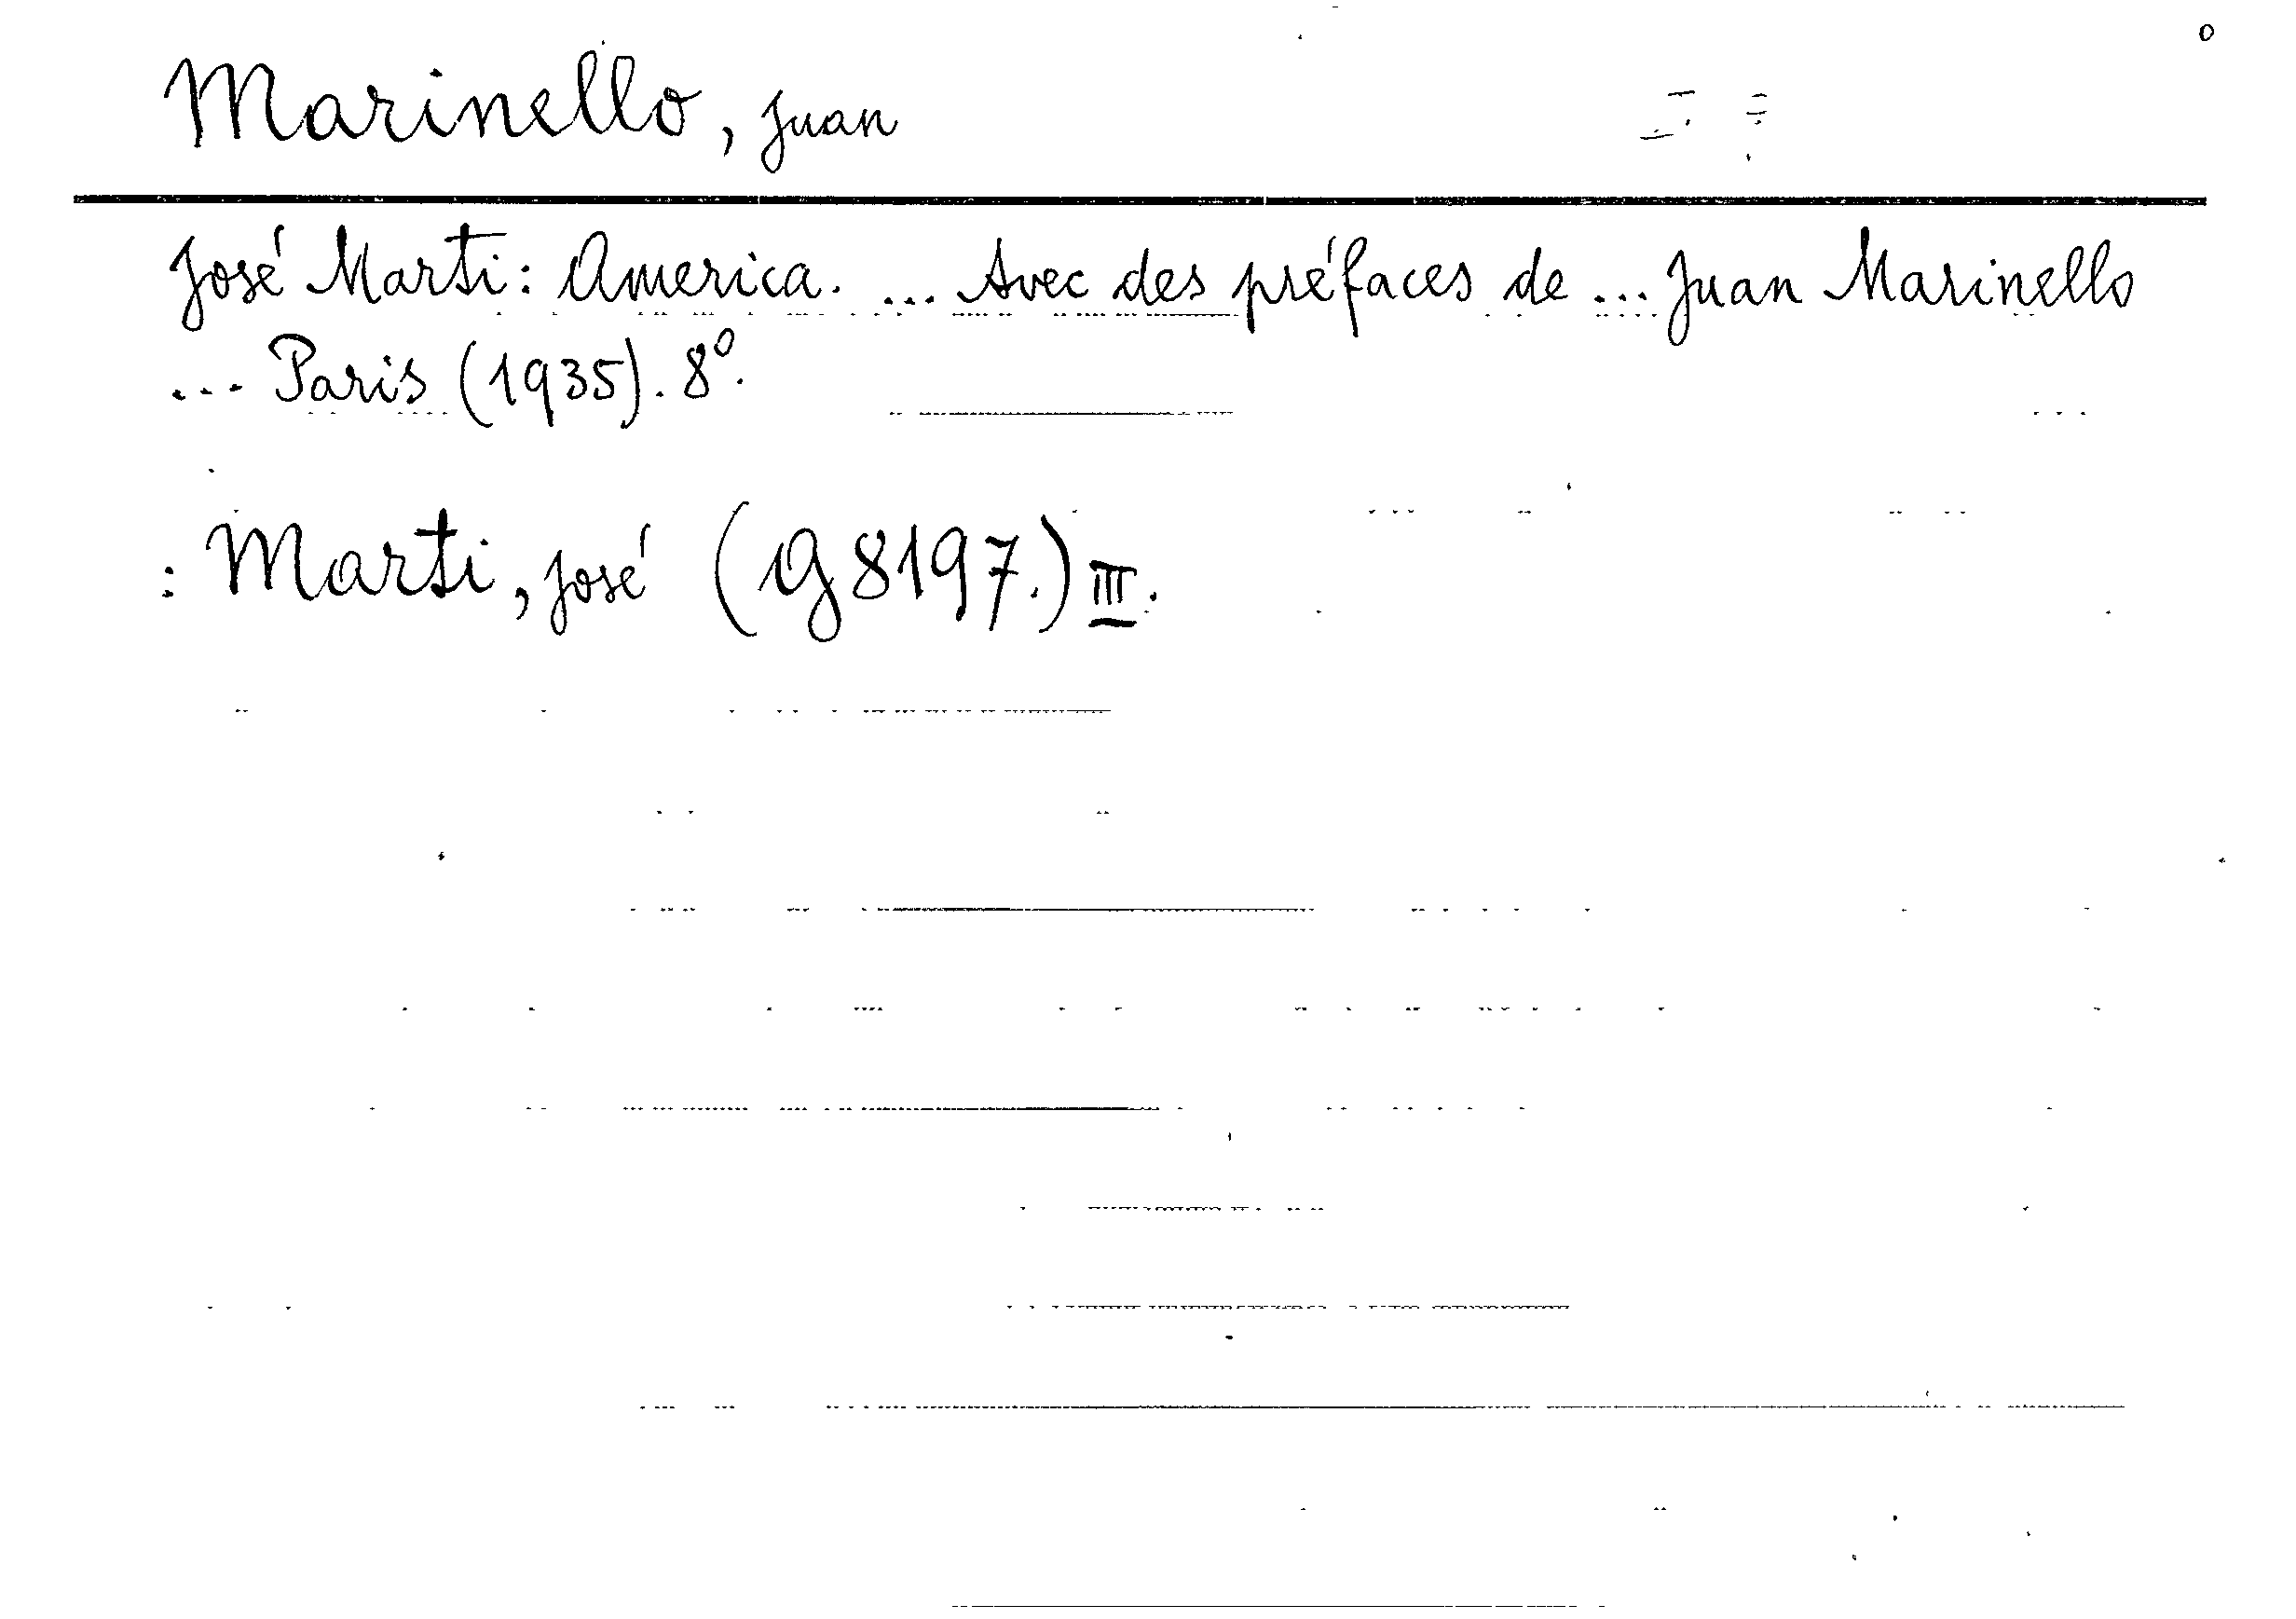 Marinello, Juan
José Marti: America. ... Avec des préfaces de ... Juan Marinello
... Paris (1935). 8º.
: Marti, José (g 8197.) III.